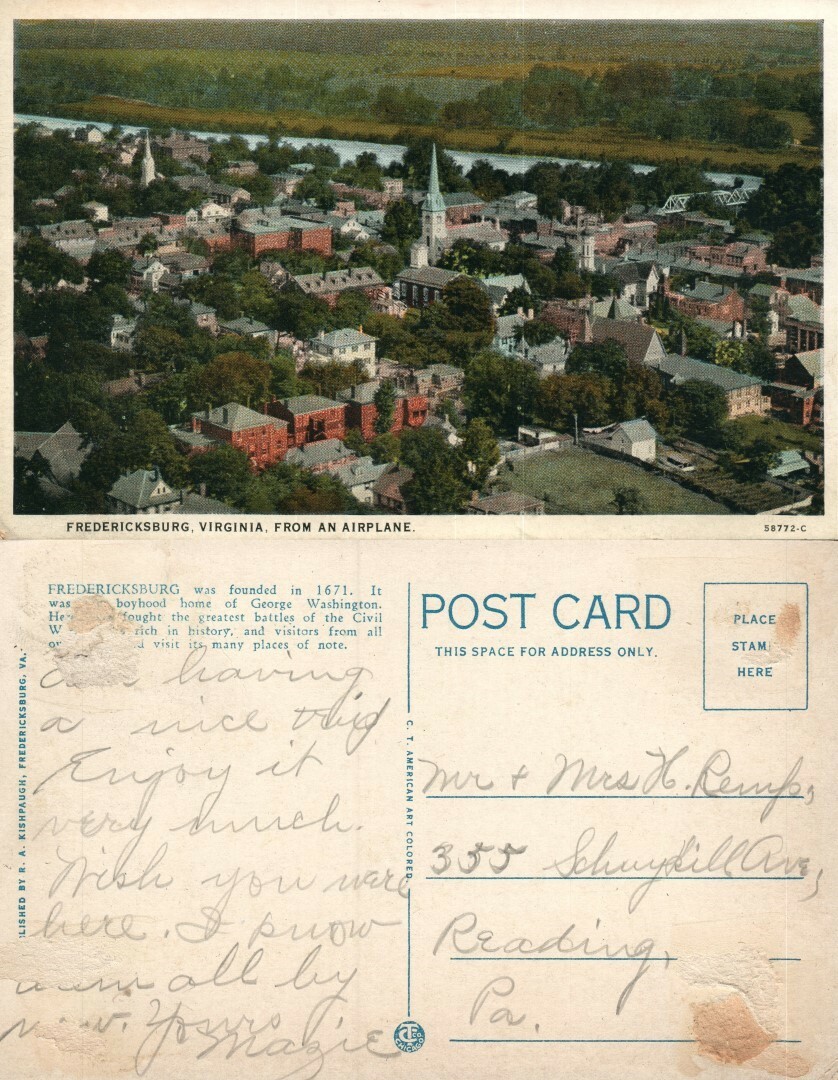 FREDERICKSBURG, VIRGINIA, FROM AN AIRPLANE.
58772-C
FREDERICKSBURG was founded in 1671. It
was boyhood home of George Washington.
fought the greatest battles of the Civil
rich in history, and visitors from all
visit its many places of note.
having
a nice trip
Enjoy it
very much.
Wish you were
here. I know
all by
Yours
Mazie
LISHED BY R. A. KISHPAUGH, FREDERICKSBURG, VA.
C. T. AMERICAN ART COLORED
POST CARD
THIS SPACE FOR ADDRESS ONLY.
PLACE
STAM
HERE
Mr + Mrs H. Remp,
355 Schuykill Ave,
Reading,
Pa.
CT CO.
CHICAGO